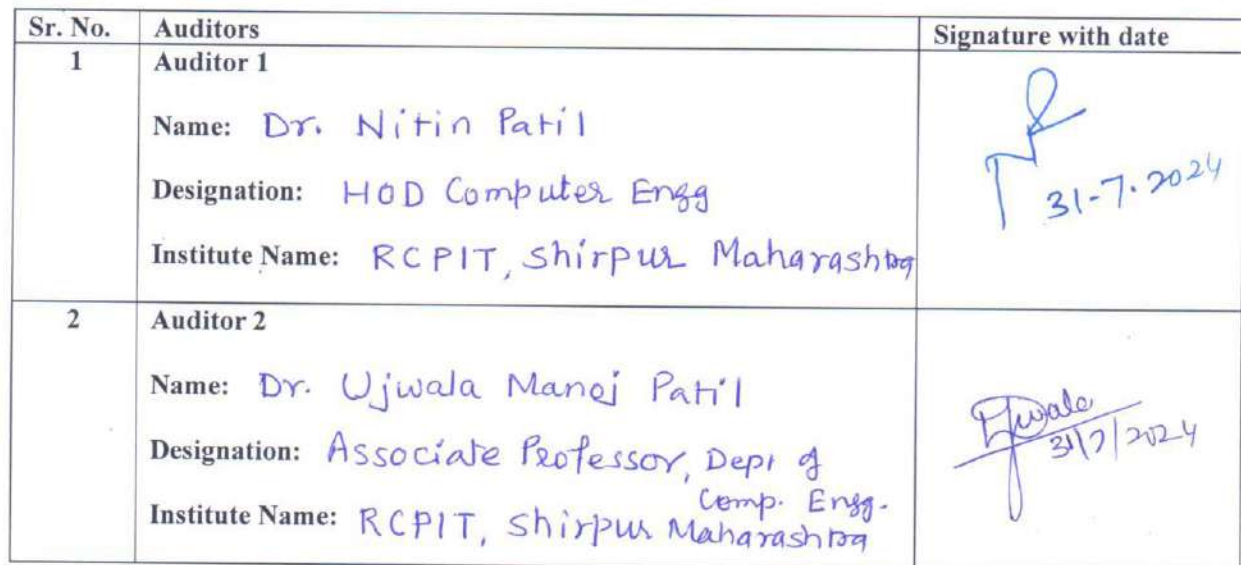 Sr. No. Auditors Signature with date
1 Auditor 1
Name: Dr. Nitin Patil
Designation: HOD Computer Engg
31-7-2024
Institute Name: RCPIT, Shirpur Maharashtra
2 Auditor 2
Name: Dr. Ujwala Manoj Patil
Ujwala
31/7/2024
Designation: Associate Professor, Dept of
Comp. Engg.
Institute Name: RCPIT, Shirpur Maharashtra